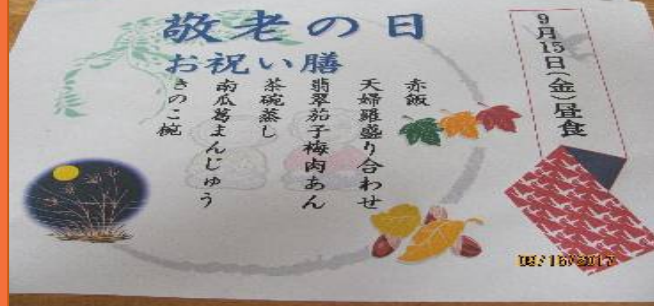 敬老の日
お祝い膳
9月15日(金)昼食
赤飯
天婦羅盛り合わせ
翡翠茄子梅肉あん
茶碗蒸し
南瓜葛まんじゅう
きのこ椀
09/16/2017